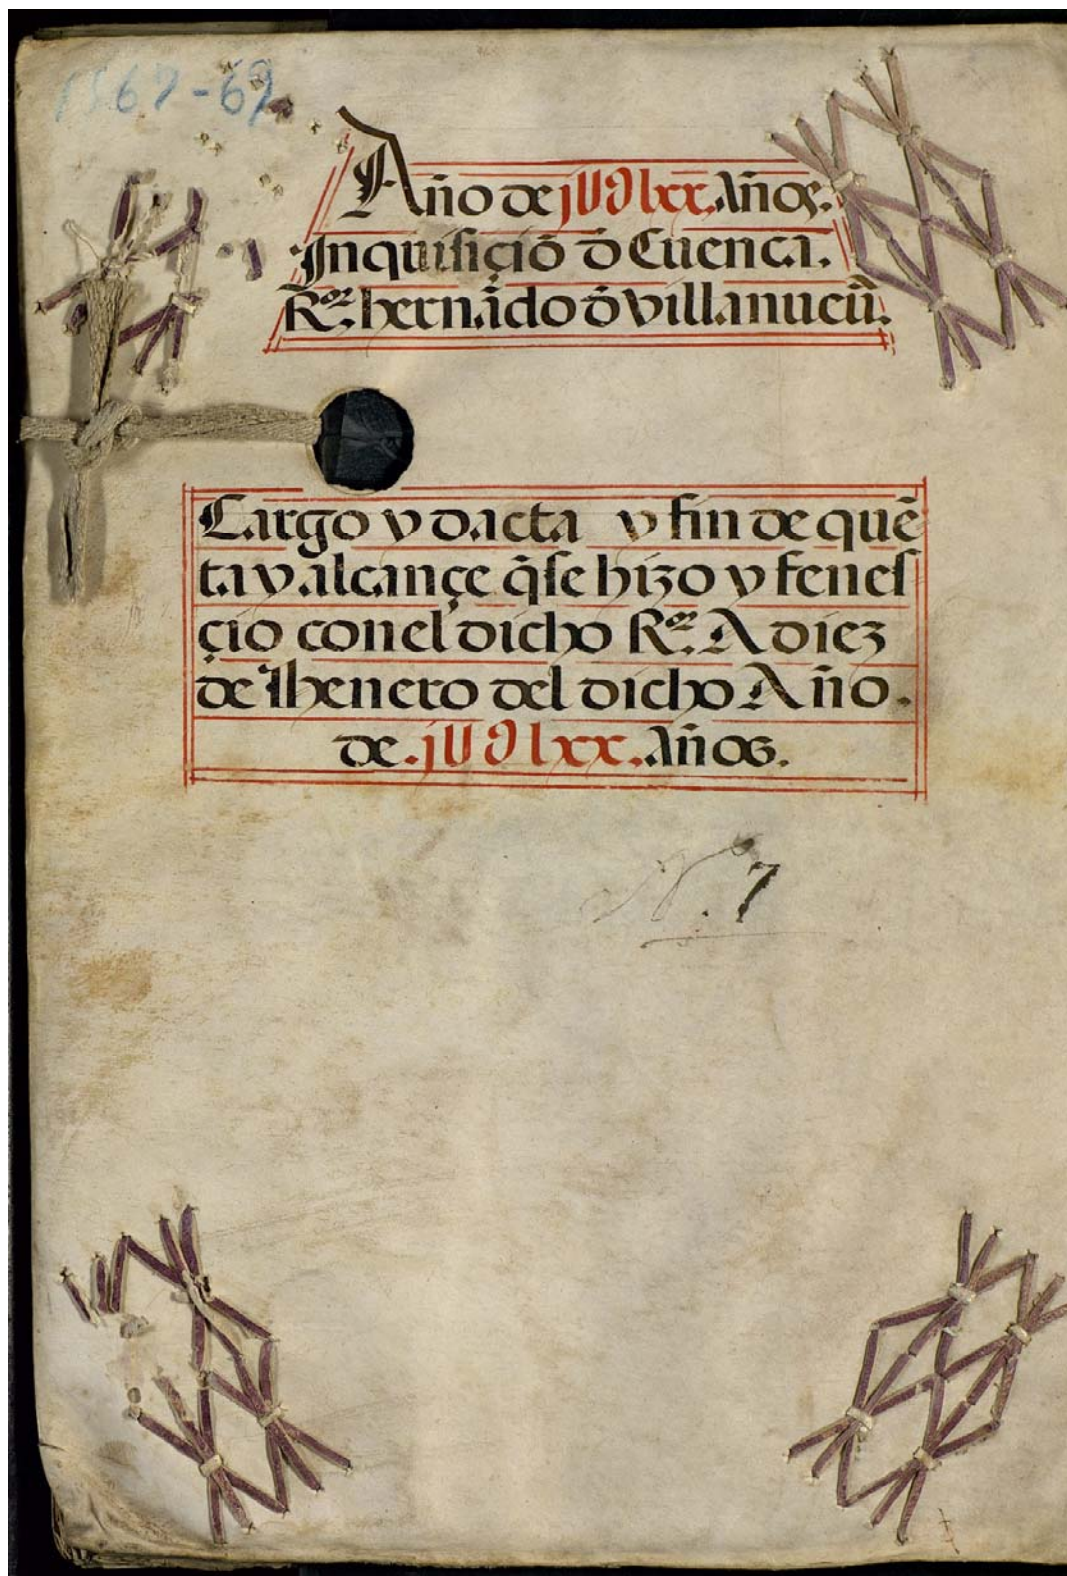 1567-69
Año de jUDlxx. Años.
Inquisiçiõ õ Cuenca.
R.ºʳ hernãdo õ villanueũ.
Cargo y dacta y fin de quẽ
ta y alcançe q̃ se hizo y fenes
çio con el dicho R.ºʳ A diez
de Ihenero del dicho Año.
de .jUDlxx. Años.
N. 7